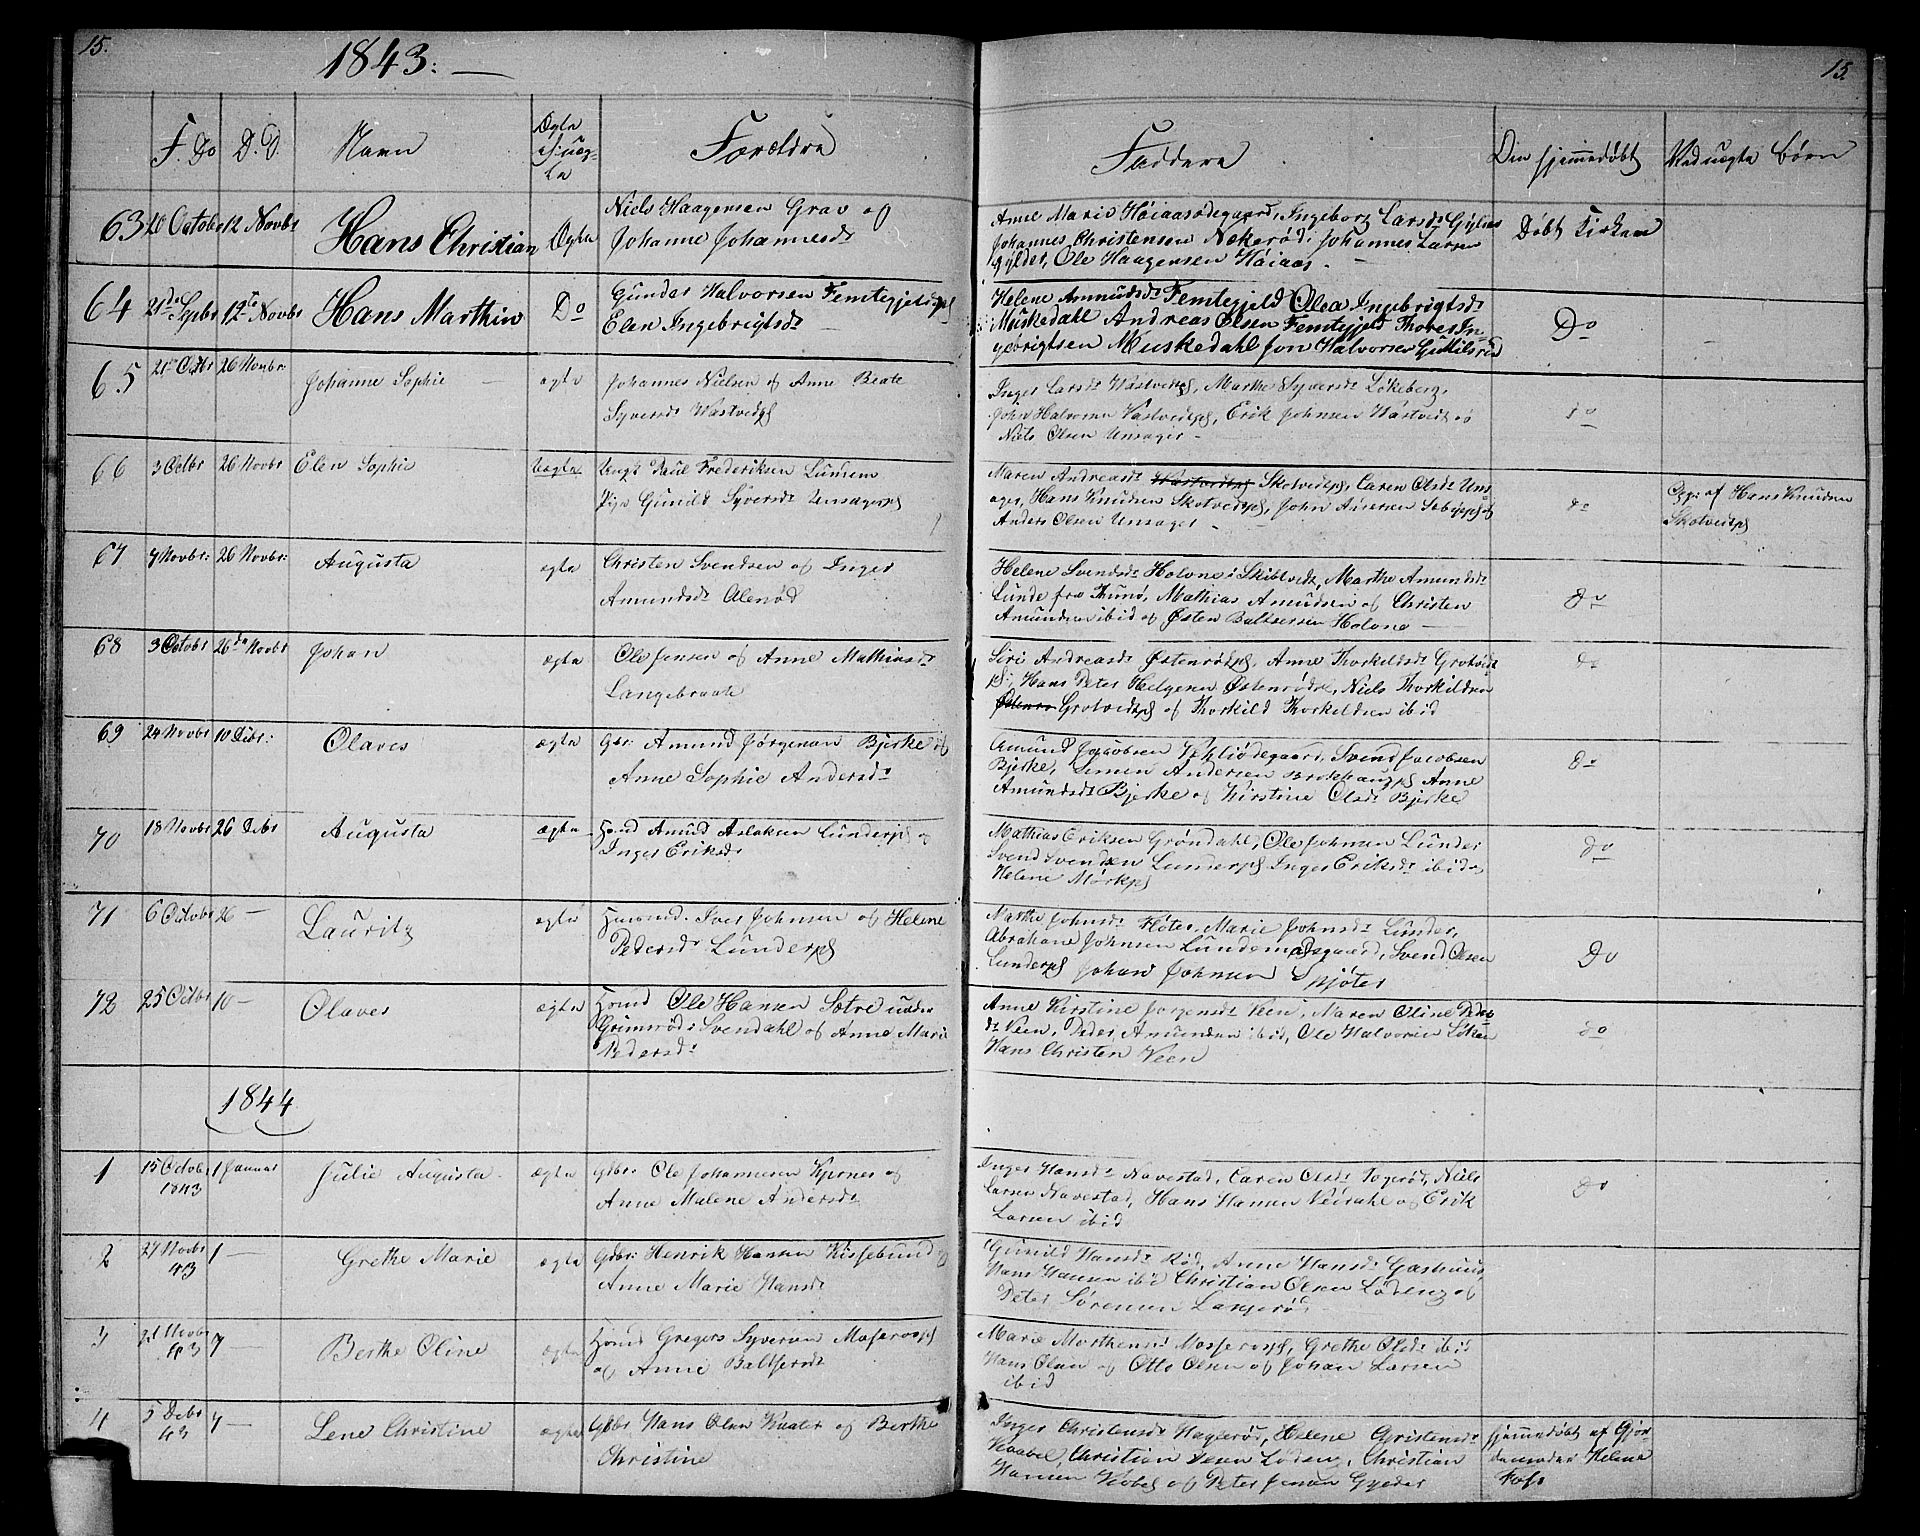 15.
1843.
15.
F. Do
D. D.
Navn
Ægte
el: uæg-
te
Forældre
Faddere
Om hjemmedøbt
Ved uægte Børn
63
20 Octobr
12 Novbr
Hans Christian
Ægte
Niels Haagensen Grav og
Johanne Johannesdr
Anne Marie Høiaasødegaard, Ingeborg Larsdr Gylder
Johannes Christensen Nækerød, Johannes Larsen
Gylder, Ole Haagensen Høiaas
Døbt Kirken
64
21de Sepbr
12te Novbr
Hans Marthin
Do
Gunder Halvorsen Femtegjeld
Elen Ingebrigtsdr
Helene Amundsdr Femtegjeld Olea Ingebrigtsdr
Muskedahl Andreas Olsen Femtegjeld Thores In-
gebrigtsen Muskedahl Jon Halvorsen
Do
65
Octbr
26 Novbr
Johanne Sophie
ægte
Johannes Nielsen og Anne Beate
Syversdr Wastvedt
Inger Larsdr Wastvedt, Marthe Syversdr Løkeberg,
John Halvorsen Vastvedt, Erik Johnsen Wastvedt og
Niels Olsen Unsager
do
66
3 Octbr
26 Novbr
Elen Sophie
Uægte
Ungk Paul Frederiksen Lunsem
Pige Gunild Syversdr Unsager
Maren Andreasdr Skotvedt, Caren Olsdr Uns-
ager, Hans Knudsen Skotvedt, John
Anders Olsen Unsager
do
Opg: af Hans Knudsen
Skotvedt
67
7 Novbr:
26 Novbr:
Augusta
ægte
Christen Svendsen og Inger
Amundsdr Alerød
Helene Svendsdr Holone i Skibtvedt, Marthe Amundsdr
Lunde fra Thunø, Mathias Amundsen og Christen
Amundsen ibid og Østen Baltsersen Holone
do
68
3 Octobr
26de Novbr
Johan
ægte
Ole Jensen og Anne Mathiasdr
Langebraate
Siri Andreasdr Østenrød, Anne Thorkildsdr Grotvedt
Hans Peter Helgesen Østenrød, Niels Thorkildsen
Grotvedt og Thorkild Thorkildsen ibid
do
69
24 Novbr
10 Debr:
Olaves
ægte
Gbr: Amund Jørgensen Bjerke og
Anne Sophie Andersdr
Amund Jacobsen, Svend Jacobsen
Bjerke, Simen Andersen Anne
Amundsdr Bjerke og Kirstine Olsdr Bjerke
do
70
18 Novbr
26 Debr
Augusta
ægte
Husmd Amund Aslaksen Lunder og
Inger Eriksdr
Mathias Eriksen Grøndahl, Ole Johnsen Lunder
Svend Svendsen Lunder Inger Eriksdr ibid og
Helene Mørk
do
71
6 Octobr
26 —
Lauritz
ægte
Husmd. Iver Johnsen og Helene
Pedersdr Lunder
Marthe Johnsdr Fløter, Marie Johnsdr Lunder,
Abraham Johnsen Lundemosgaard, Svend Olsen
Lunder Johan Johnsen Spjøter
Do
72
25 Octbr
10 —
Olaves
ægte
Husmd Ole Hansen Sætre under
Grimsrød Svendahl og Anne Marie
Pedersdr
Anne Kirstine Jørgensdr Veen, Maren Oline Peder-
sdr Veen, Peder Amundsen ibid, Ole Halvorsen Løken
Hans Christen Veen
do
1844
1
15 Octobr
1843
1 Januar
Julie Augusta
ægte
Gbr: Ole Johannesen Kjernes og
Anne Malene Andersdr
Inger Hansdr Navestad, Caren Olsdr Togerød, Niels
Larsen Navestad, Hans Hansen Veidahl og Erik
Larsen ibid
do
2
27 Novbr
43
1 —
Grethe Marie
ægte
Gbr: Henrik Hansen Kissebund og
Anne Marie Hansdr
Gunild Hansdr Rød, Anne Hansdr Gashuus,
Hans Hansen ibid Christian Olsen Lødeng og
Peter Sørensen Langerød
3
21 Novbr
43
7 —
Berthe Oline
ægte
Husmd Gregers Syversen Moserøs
og Anne Baltsersdr
Marie Morthensdr Moserøs, Grethe Olsdr ibid
Hans Olsen og Otto Olsen og Johan Larsen
ibid
4
5 Debr
43
7 —
Lene Christine
ægte
Gbr Hans Olsen Knater og Berthe
Christine
Inger Christensdr Haglerød, Helene Christensdr
Kaabel, Christian Veen Løden, Christian
Hansen Kobel og Peter Jensen Gyeder
hjemmedøbt af Gjor-
demoder Helene
Foss